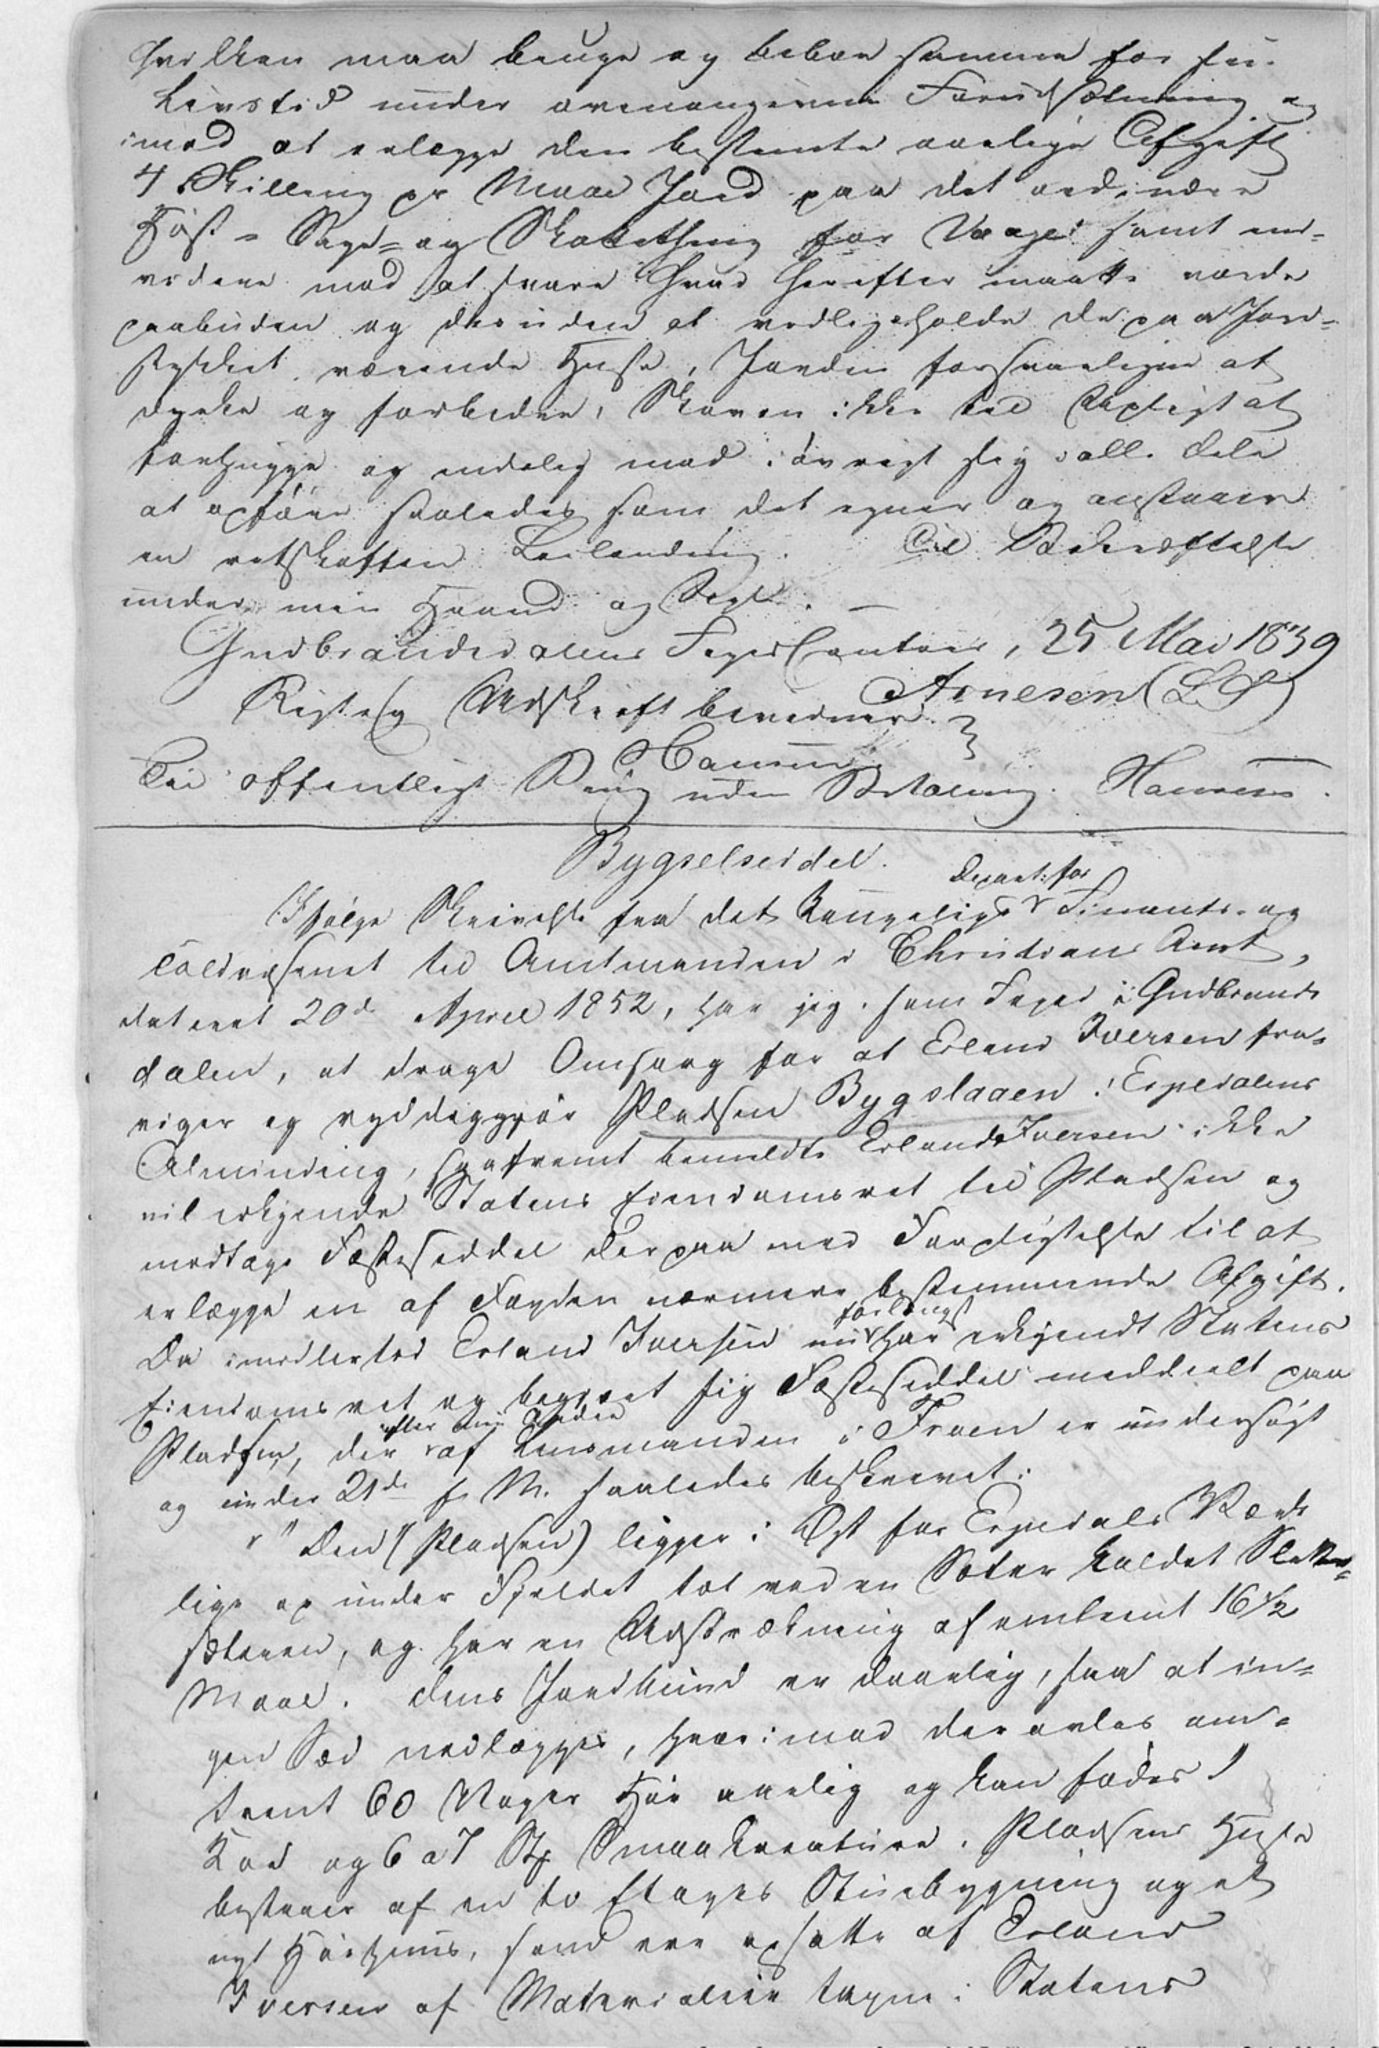 hvilken maa bruge og beboe samme for sin
Livstid under ovenangivne Forudsætning og
imod at erlægge den bestemte aarlige Afgift
4 Skilling pr Maal Jord paa det ordinære
Høst- Sage- og Skattething for Vaage samt end-
videre mod at svare hvad herefter maatte vorde
paabuden og desuden at vedligeholde de paa Jord-
stykket værende Huse, Jorden forsvarligen at
dyrke og forbedre, Skoven ikke til Upligt at
forhugge og endelig mod i øvrigt sig i alle Dele
at opføre saaledes som det egner og anstaaer
en retskaffen Leilænding. Til Bekræftelse
under min Haand og Segl. —
Gudbrandsdalens Foged Contoir, 25 Mai 1839
Arnesen (L.S.)
Rigtig Udskrift bevidner
Til offentligt Brug uden Betaling. Hansen.
Bygselseddel.
Ifølge Skrivelse fra det Kongelige Depart: for Finants- og
Toldvæsenet til Amtmanden i Christians Amt,
dateret 20de April 1852, har jeg som Foged i Gudbrands
dalen, at drage Omsorg for at Erland Iversen fra-
viger og ryddeggjør Pladsen Bygslaaen i Espedalens
Alminding, saafremt bemeldte Erland Iversen ikke
vil erkjende Statens Eiendomsret til Pladsen og
modtage Fæsteseddel derpaa med Forpligtelse til at
erlægge en af Fogden nærmere bestemmende Afgift.
Da imidlertid Erland Iversen nu forlængst har erkjendt Statens
Eiendomsret og begjært sig Fæsteseddel meddeelt paa
Pladsen, der efter min Ordre af Lensmanden i Froen er undersøgt
og under 21de f. M. saaledes beskrevet:
"Den (Pladsen) ligger i Øst for Espedals Værk
lige op under Fjeldet tæt ved en Sæter kaldet Slette-
sæteren, og har en Udstrækning af omtrent 16 1/2
Maal. Dens Jordbund er daarlig, saa at in-
gen Sæd nedlægges, hvorimod der avles om-
trent 60 Voger Hø aarlig og kan fødes 1
Koe og 6 a 7 Stk Smaakreature. Pladsens Huse
bestaaer af en to Etages Stuebygning og et
nyt Høehuus, som ere opsatte af Erland
Iversen af Materialier tagne i Statens